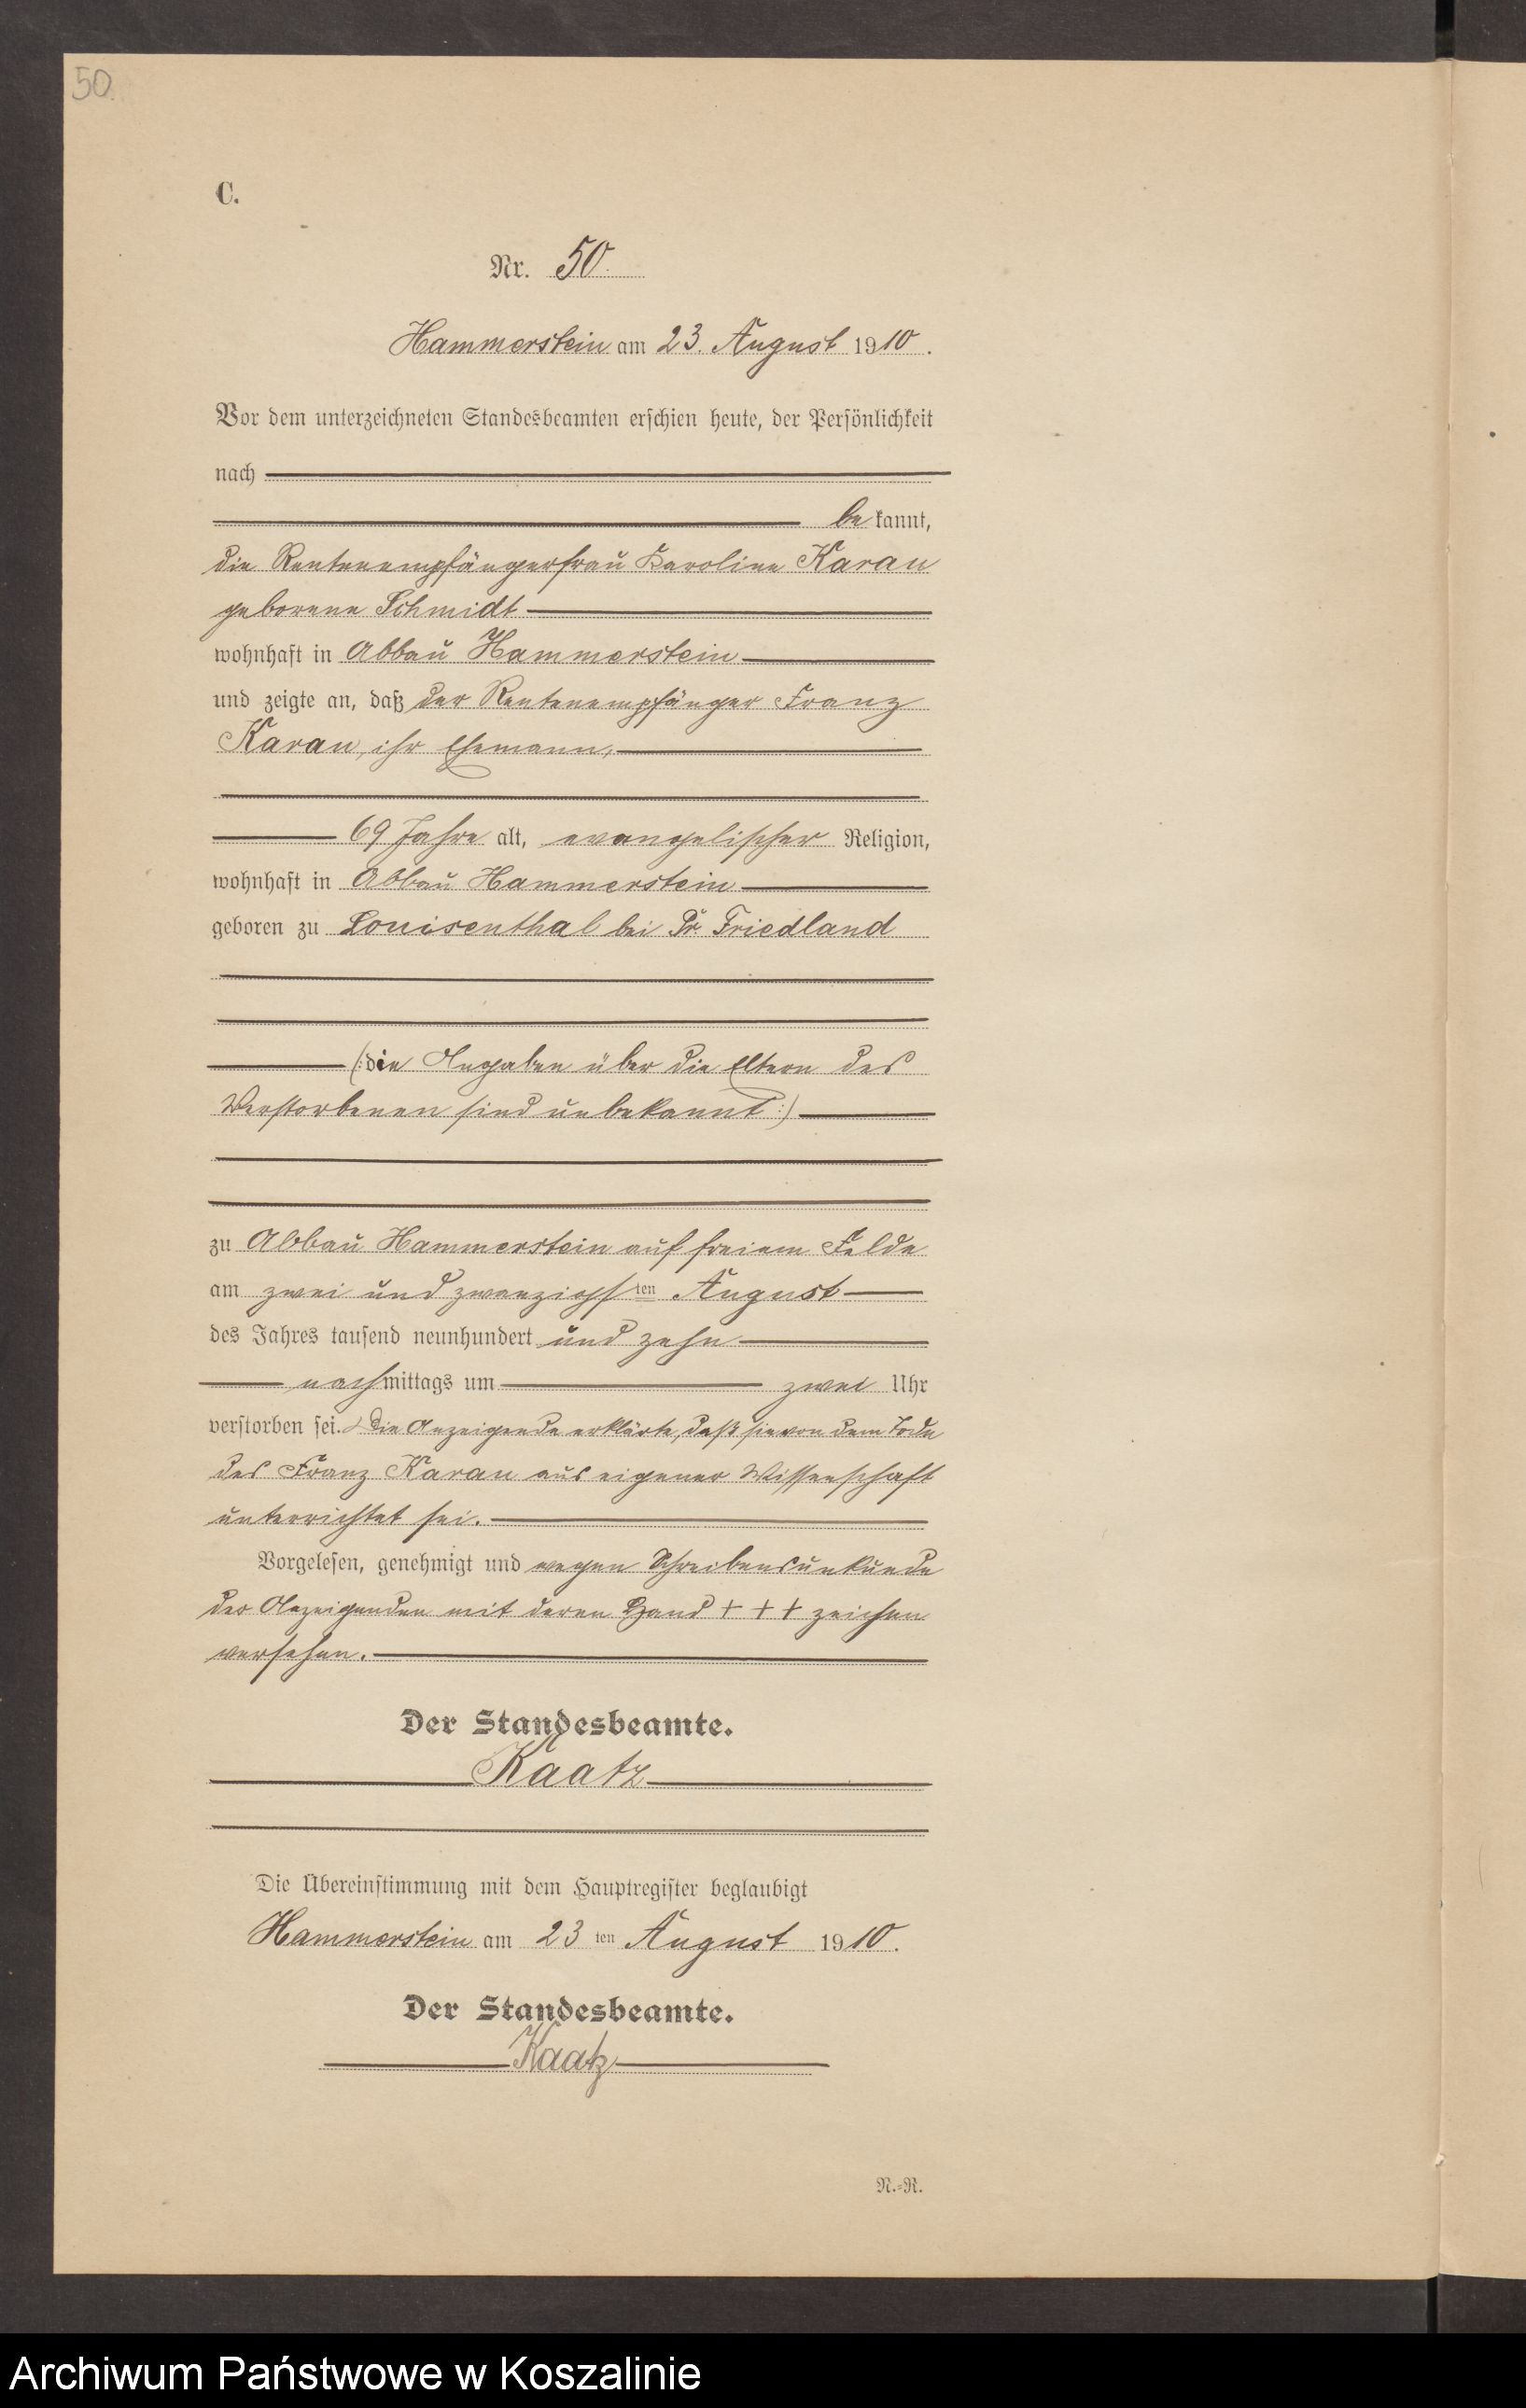 50.
C.
Nr. 50.
Hammerstein am 23. August 1910.
Vor dem unterzeichneten Standesbeamten erschien heute, der Persönlichkeit
nach
be kannt,
die Rentenempfängerfrau Karoline Karau
geborene Schmidt
wohnhaft in Abbau Hammerstein
und zeigte an, daß der Rentenempfänger Franz
Karau, ihr Ehemann,
69 Jahre alt, evangelischer Religion,
wohnhaft in Abbau Hammerstein
geboren zu Louisenthal bei Pr. Friedland
(: die Angaben über die Eltern des
Verstorbenen sind unbekannt :)
zu Abbau Hammerstein auf freiem Felde
am zwei und zwanzigsten August
des Jahres tausend neunhundert und zehn
nachmittags um zwei Uhr
verstorben sei. Die Anzeigende erklärte, daß sie von dem Tode
des Franz Karau aus eigener Wissenschaft
unterrichtet sei.
Vorgelesen, genehmigt und wegen Schreibensunkunde
der Anzeigenden mit deren Hand + + + zeichen
versehen.
Der Standesbeamte.
Kaatz
Die Übereinstimmung mit dem Hauptregister beglaubigt
Hammerstein am 23ten August 1910.
Der Standesbeamte.
Kaatz
N.-R.
Archiwum Państwowe w Koszalinie